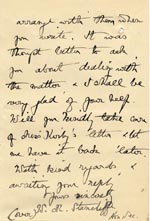 arrange with them when
you wrote. It was
thought better to ask
you about dealing with
the matter & I shall be
very glad of your help.
Will you kindly take care
of Miss letter & let
me have it back later.
With kind regards &
awaiting your reply,
Yours sincerely